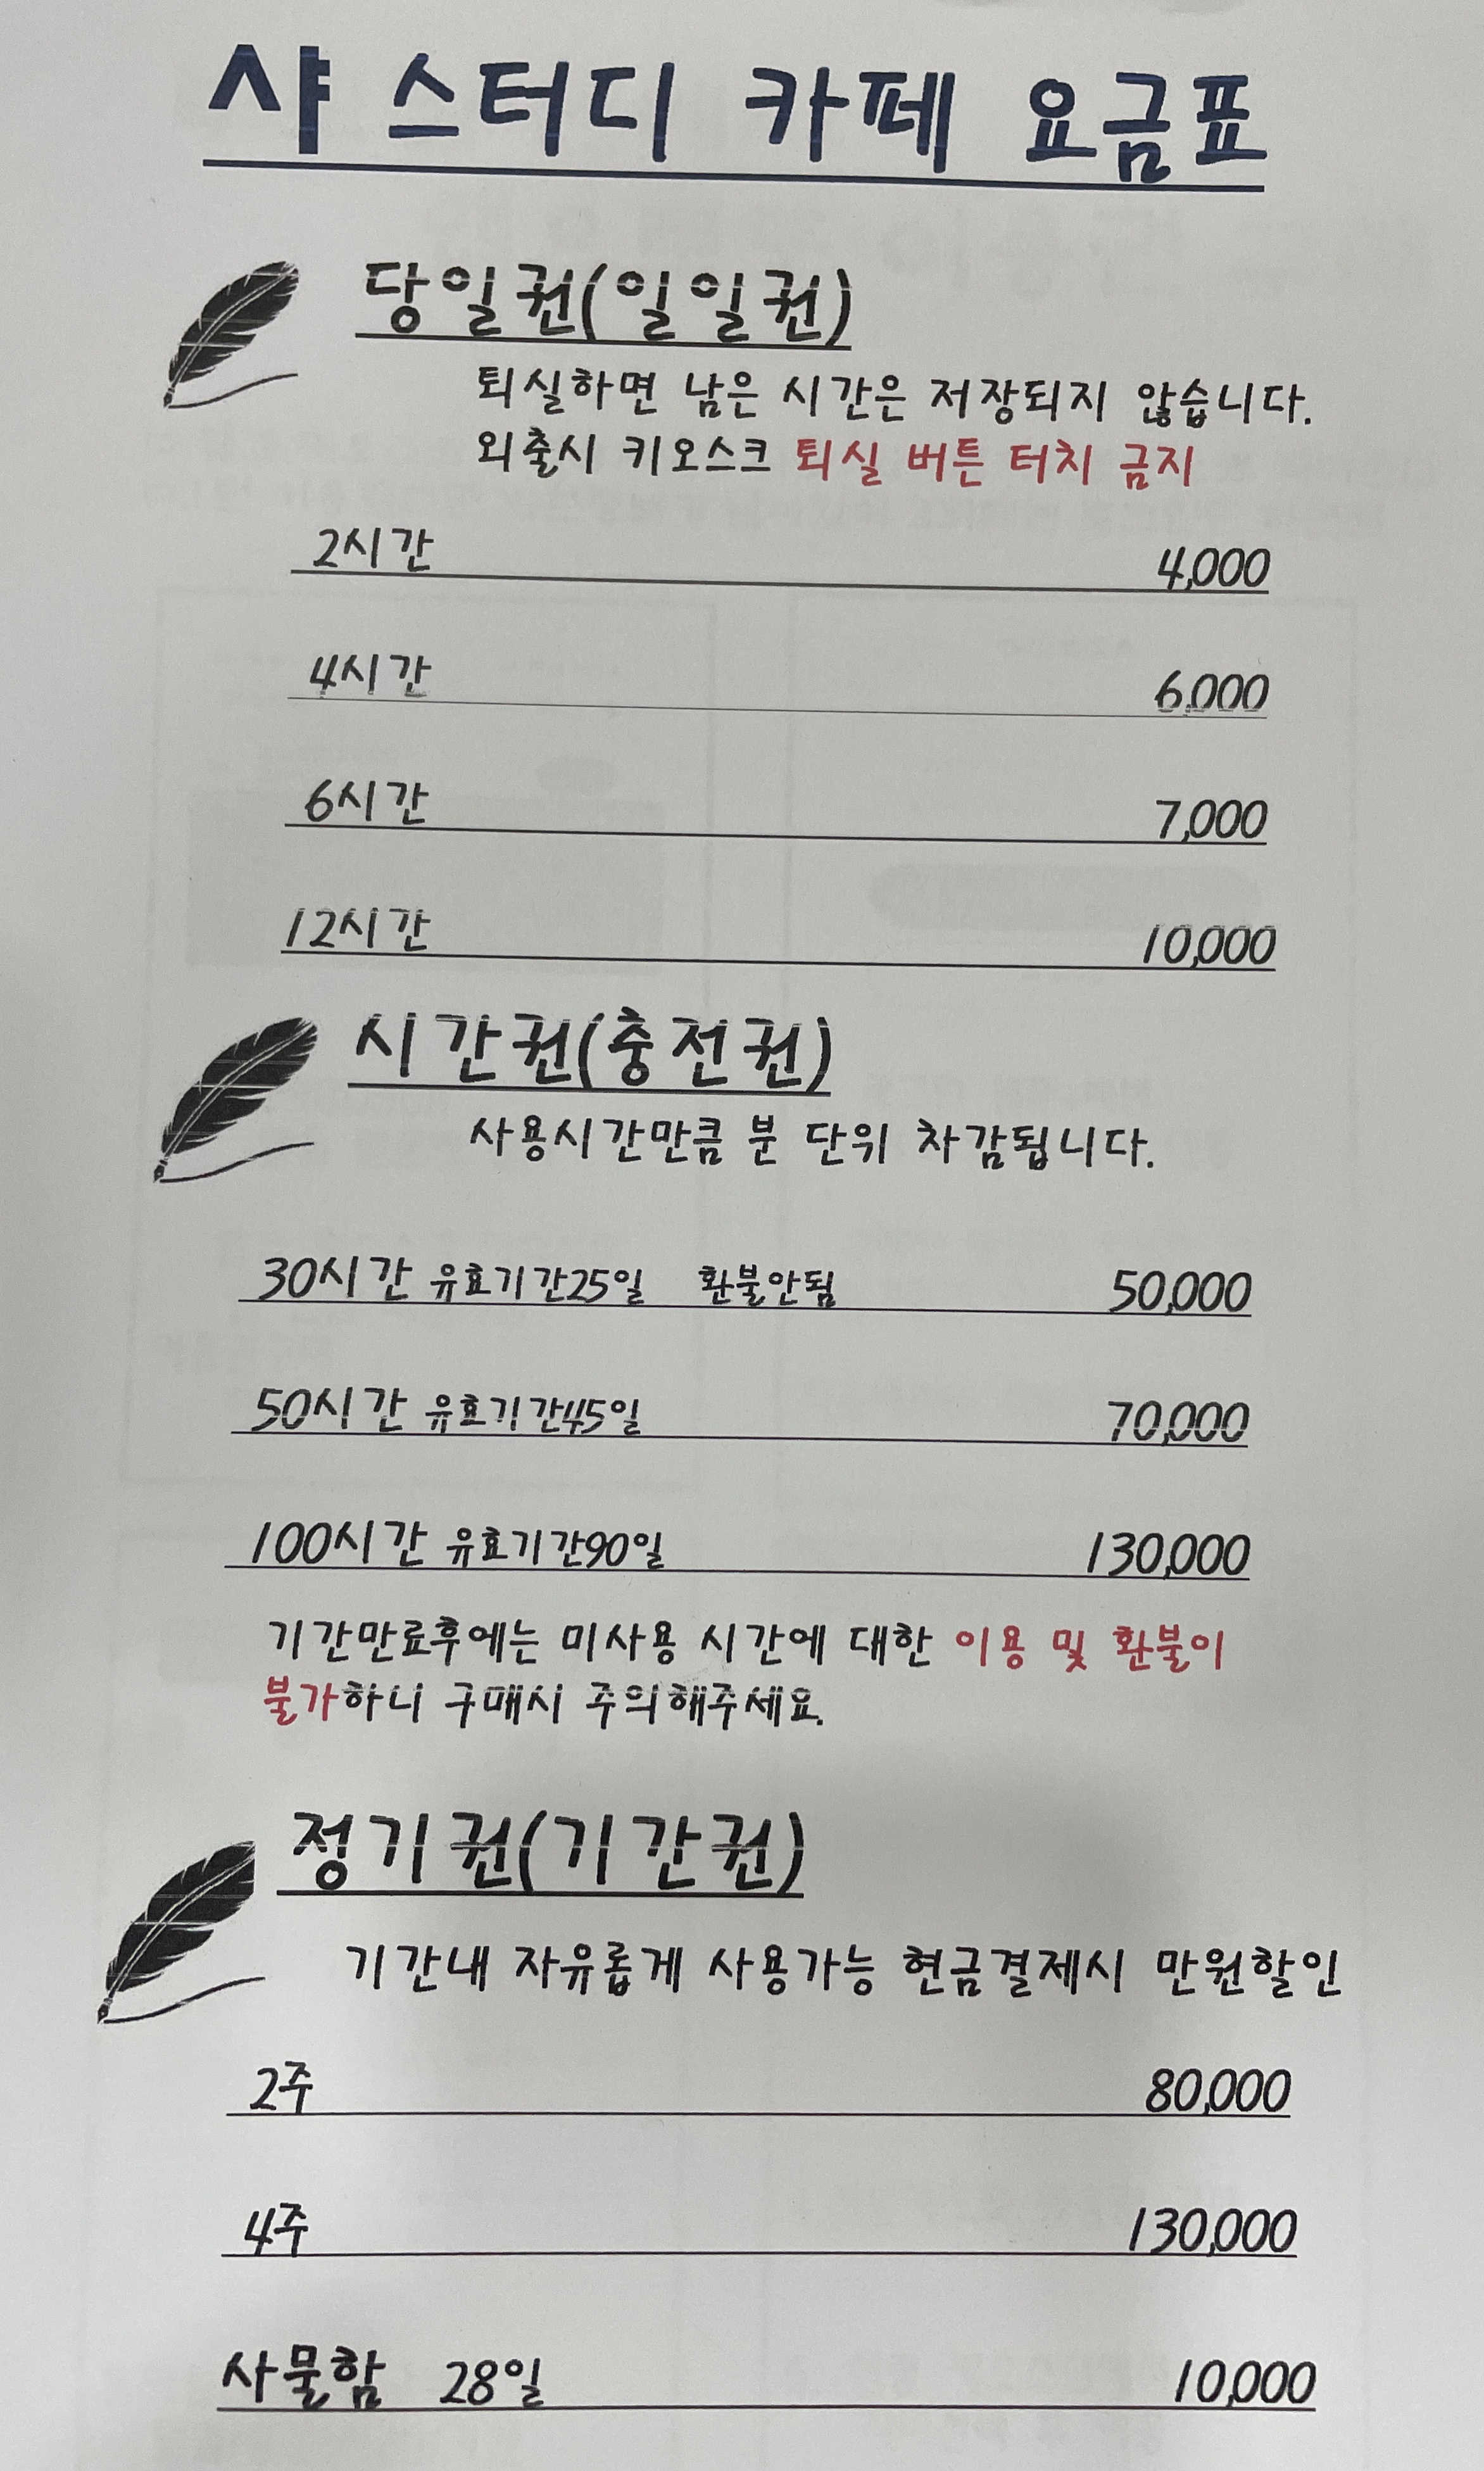 샤 스터디 카페 요금표
당일권(일일권)
퇴실하면 남은 시간은 저장되지 않습니다.
외출시 키오스크 퇴실 버튼 터치 금지
2시간 4,000
4시간 6,000
6시간 7,000
12시간 10,000
시간권(충전권)
사용시간만큼 분 단위 차감됩니다.
30시간 유효기간25일 환불안됨 50,000
50시간 유효기간45일 70,000
100시간 유효기간90일 130,000
기간만료후에는 미사용 시간에 대한 이용 및 환불이
불가하니 구매시 주의해주세요.
정기권(기간권)
기간내 자유롭게 사용가능 현금결제시 만원할인
2주 80,000
4주 130,000
사물함 28일 10,000